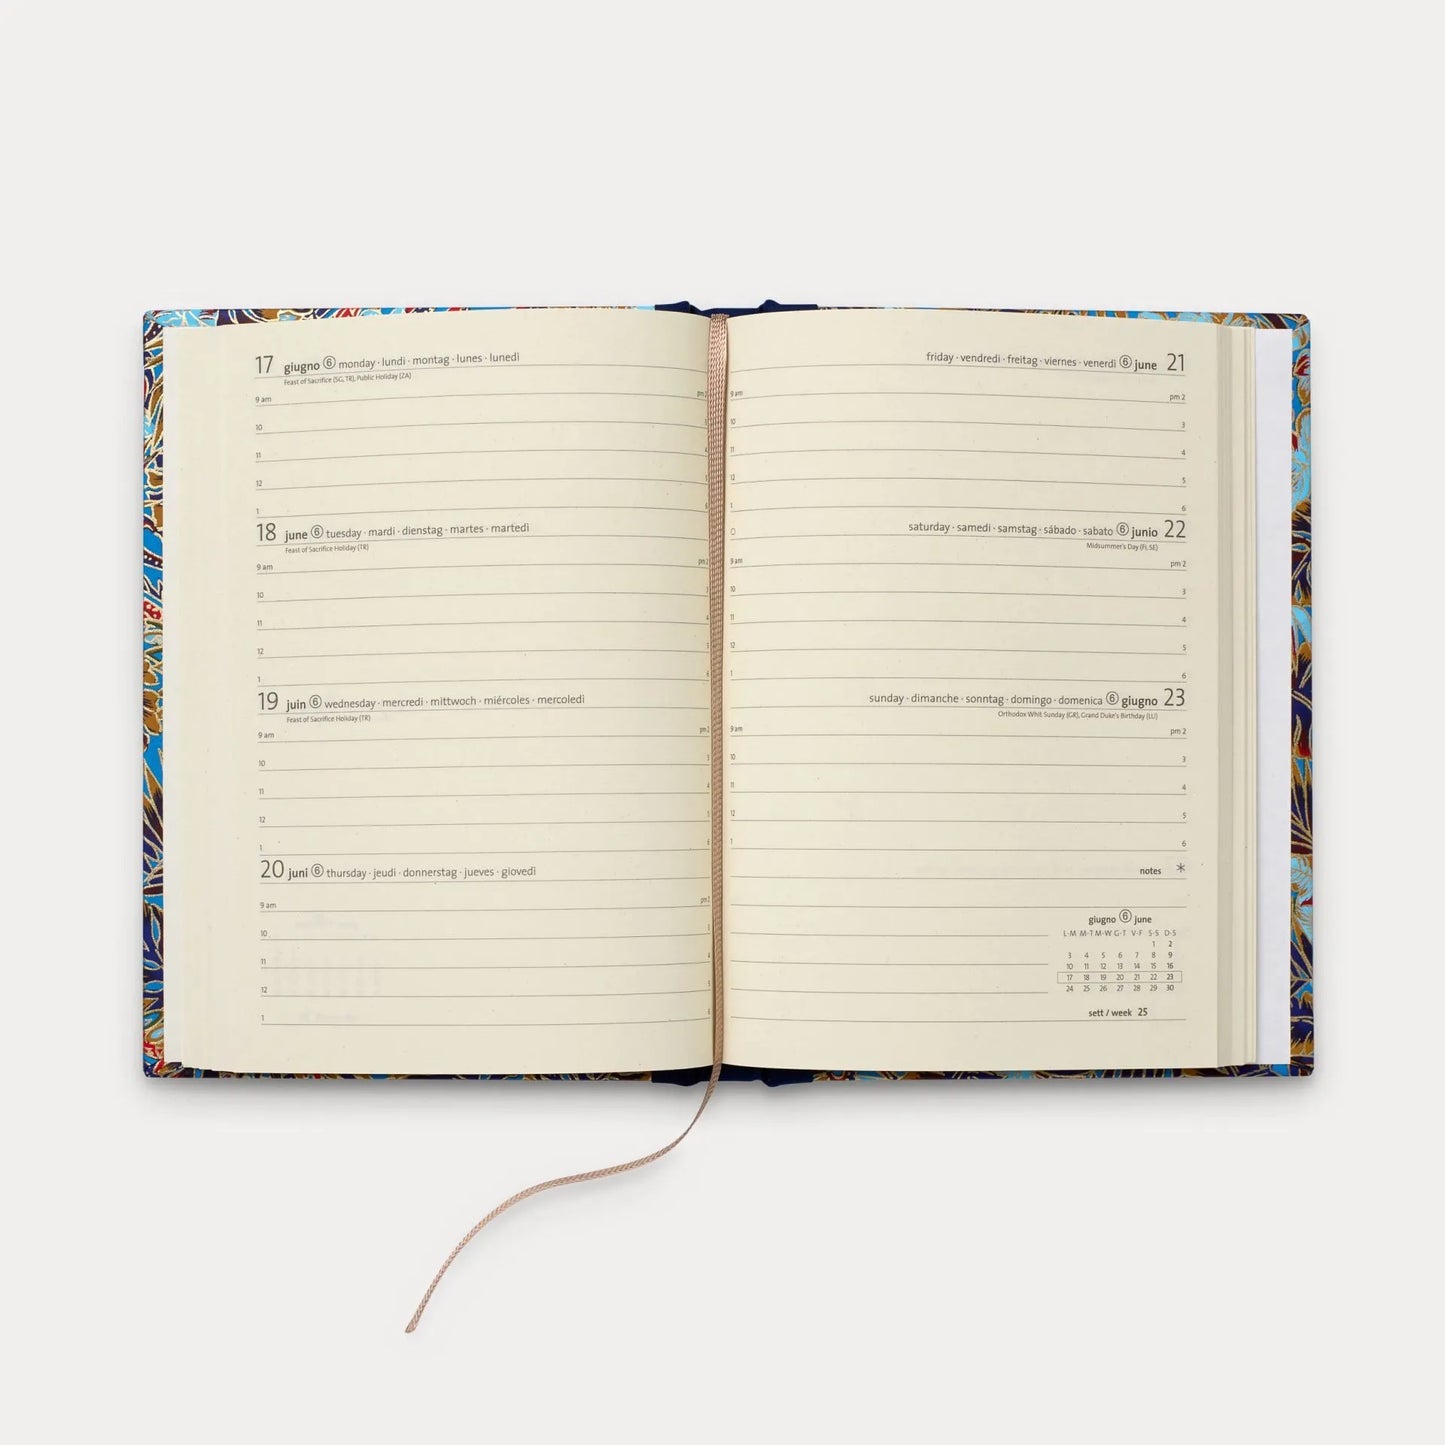 17 giugno ⑥ monday · lundi · montag · lunes · lunedì
Feast of Sacrifice (SG, TR), Public Holiday (ZA)
9 am pm 2
10
11
12
1
18 june ⑥ tuesday · mardi · dienstag · martes · martedì
Feast of Sacrifice Holiday (TR)
9 am pm 2
10
11
12
1
19 juin ⑥ wednesday · mercredi · mittwoch · miércoles · mercoledì
Feast of Sacrifice Holiday (TR)
9 am pm 2
10
11
12
1
20 juni ⑥ thursday · jeudi · donnerstag · jueves · giovedì
9 am pm 2
10
11
12
1
friday · vendredi · freitag · viernes · venerdì ⑥ june 21
9 am pm 2
10 3
11 4
12 5
1 6
saturday · samedi · samstag · sábado · sabato ⑥ junio 22
Midsummer's Day (FI, SE)
9 am pm 2
10 3
11 4
12 5
1 6
sunday · dimanche · sonntag · domingo · domenica ⑥ giugno 23
Orthodox Whit Sunday (GR), Grand Duke's Birthday (LU)
9 am pm 2
10 3
11 4
12 5
1 6
notes *
giugno ⑥ june
L-M M-T M-W G-T V-F S-S D-S
1 2
3 4 5 6 7 8 9
10 11 12 13 14 15 16
17 18 19 20 21 22 23
24 25 26 27 28 29 30
sett / week 25